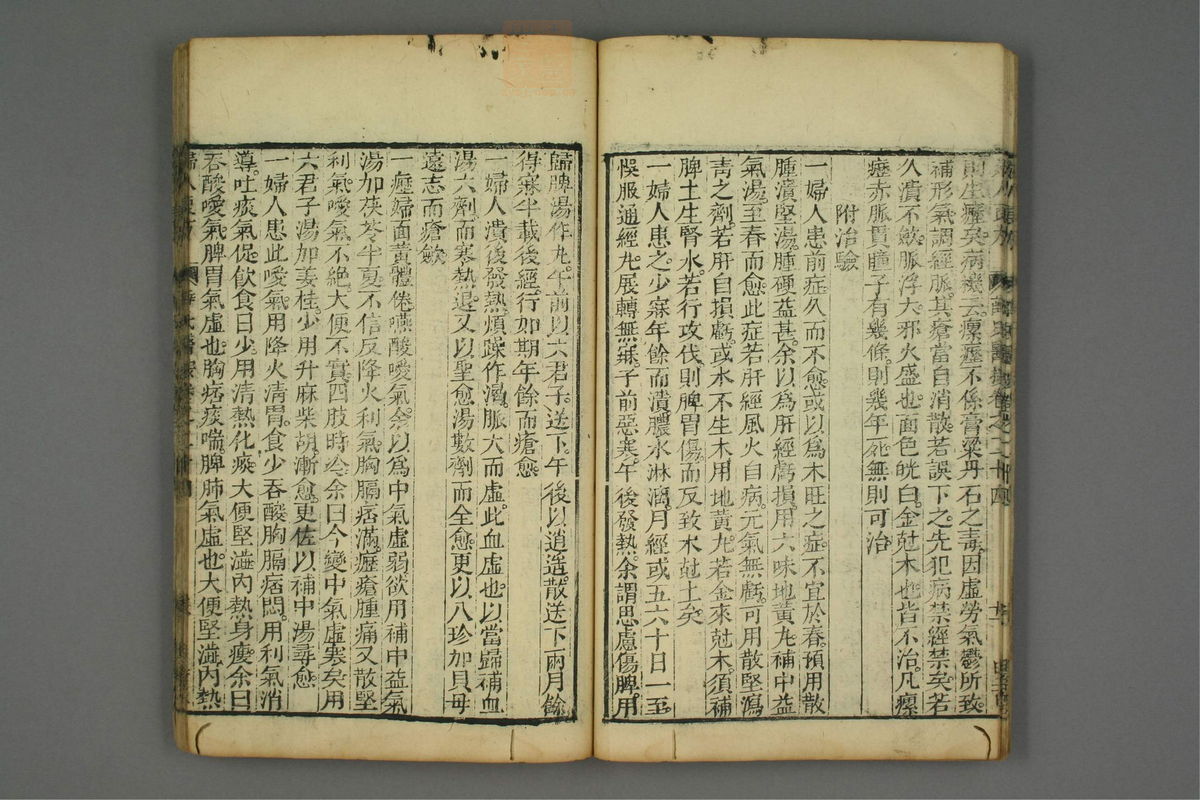 則生瘰矣病機云瘰癧不係膏粱丹石之毒因虛勞氣鬱所致
補形氣調經脈其瘡當自消散若誤下之先犯病禁經禁矣若
久潰不斂脈浮大邪火盛也面色㿠白金尅木也皆不治凡瘰
癧赤脈貫瞳子有幾條則幾年死無則可治
附治驗
一婦人患前症久而不愈或以爲木旺之症不宜於春預用散
腫潰堅湯腫硬益甚余以爲肝經虧損用六味地黃丸補中益
氣湯至春而愈此症若肝經風火自病元氣無虧可用散堅瀉
靑之劑若肝自損虧或水不生木用地黃丸若金來尅木須補
脾土生腎水若行攻伐則脾胃傷而反致木尅土矣
一婦人患之少寐年餘而潰膿水淋漓月經或五六十日一至
悞服通經丸展轉無寐子前惡寒午後發熱余謂思慮傷脾用
歸脾湯作丸午前以六君子送下午後以逍遙散送下兩月餘
得寐半載後經行如期年餘而瘡愈
一婦人潰後發熱煩躁作渴脈大而虛此血虛也以當歸補血
湯六劑而寒熱退又以聖愈湯數劑而全愈更以八珍加貝母
遠志而瘡斂
一癧婦面黃體倦嚥酸噯氣余以爲中氣虛弱欲用補中益氣
湯加茯苓半夏不信反降火利氣胸膈痞滿癧瘡腫痛又散堅
利氣噯氣不絕大便不實四肢時冷余曰今變中氣虛寒矣用
六君子湯加姜桂少用升麻柴胡漸愈更佐以補中湯尋愈
一婦人患此噯氣用降火淸胃食少吞酸胸膈痞悶用利氣消
導吐痰氣促飲食日少用淸熱化痰大便堅澁內熱身瘦余曰
吞酸噯氣脾胃氣虛也胸痞痰喘脾肺氣虛也大便堅澁內熱